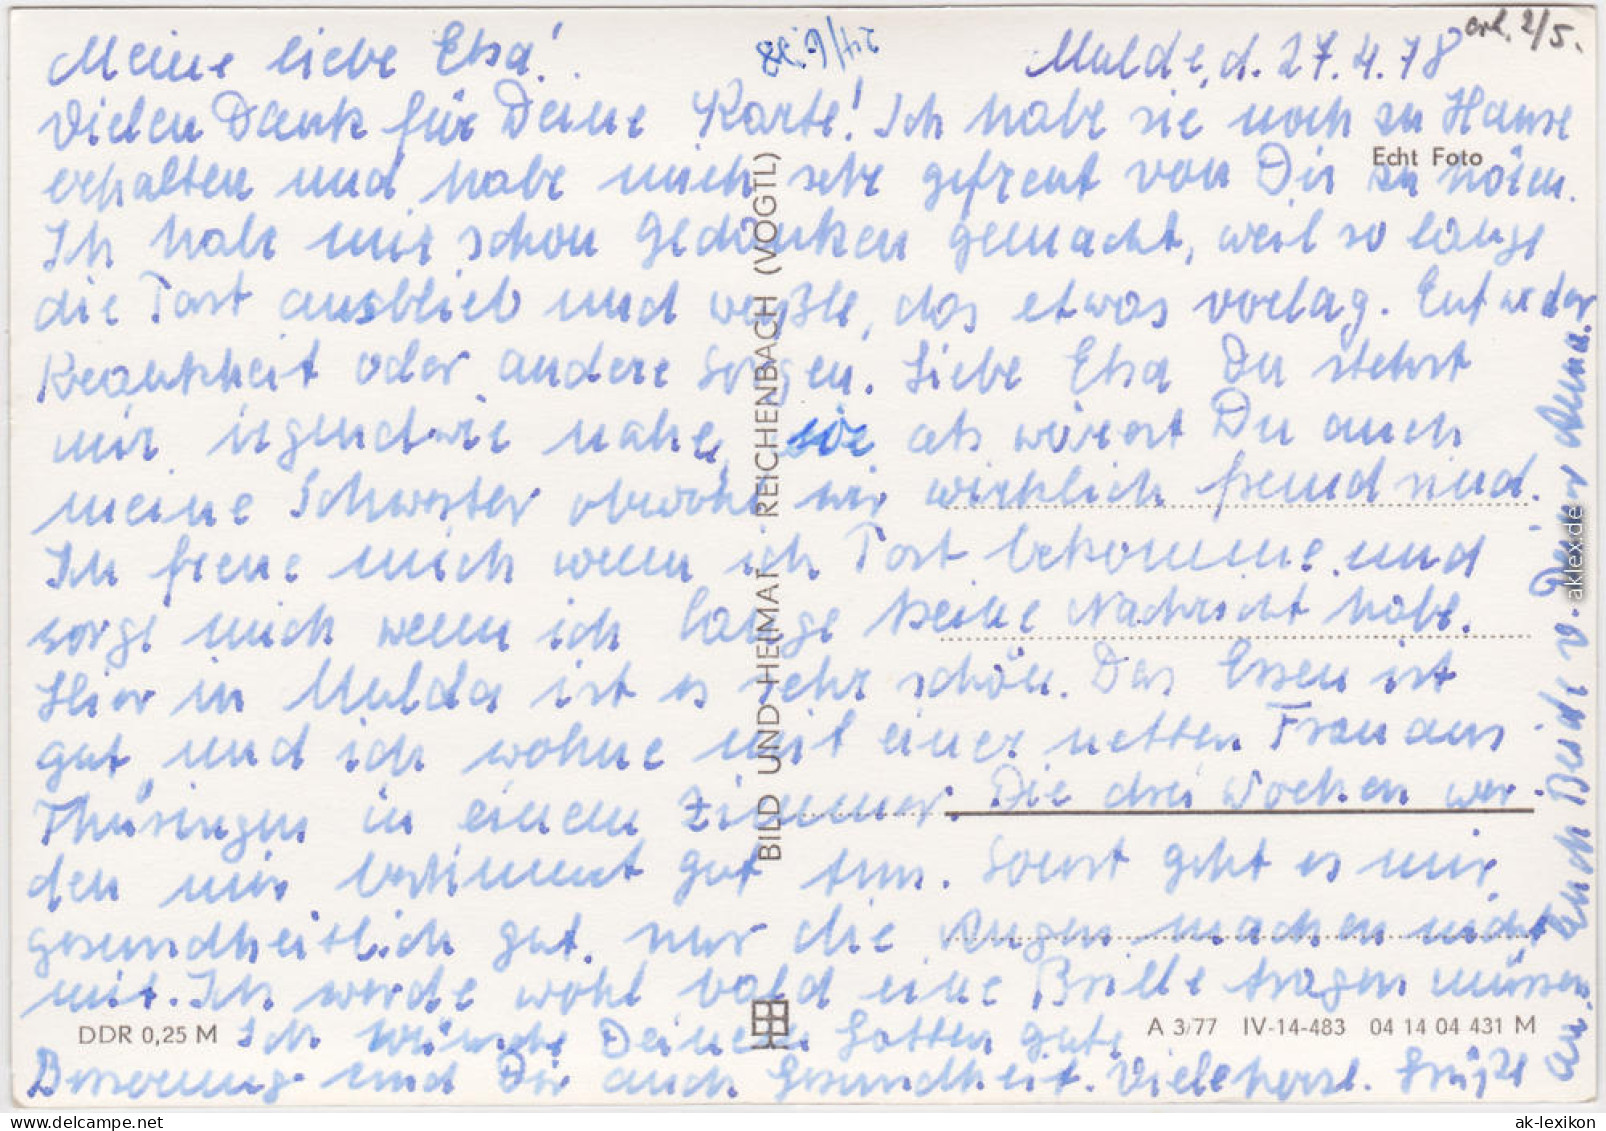 erh. 2/5.
Meine liebe Elsa!
24/6.78
Mulda, d. 27.4.78
Vielen Dank für Deine Karte! Ich habe sie noch zu Hause
Echt Foto
erhalten und habe mich sehr gefreut von Dir zu hören.
Ich habe mir schon Gedanken gemacht, weil so lange
die Post ausblieb und wußte, das etwas vorlag. Entweder
Krankheit oder andere Sorgen. Liebe Elsa Du stehst
mir irgendwie nahe, als wärest Du auch
meine Schwester obwohl wir wirklich fremd sind.
Ich freue mich wenn ich Post bekomme und
sorge mich wenn ich lange keine Nachricht habe.
Hier in Mulda ist es sehr schön. Das Essen ist
gut und ich wohne mit einer netten Frau aus
Thüringen in einem Zimmer. Die drei Wochen wer-
den mir bestimmt gut tun. Sonst geht es mir
gesundheitlich gut, nur die Augen machen nicht
mit. Ich werde wohl bald eine Brille tragen müssen.
Ich wünsche Deinem Gatten gute
Besserung und Dir auch Gesundheit. Viele herzl. Grüße
an Euch Beide v. Deiner Anna.
BILD UND HEIMAT REICHENBACH (VOGTL)
DDR 0,25 M
A 3/77 IV-14-483 04 14 04 431 M
aklex.de
ak-lexikon